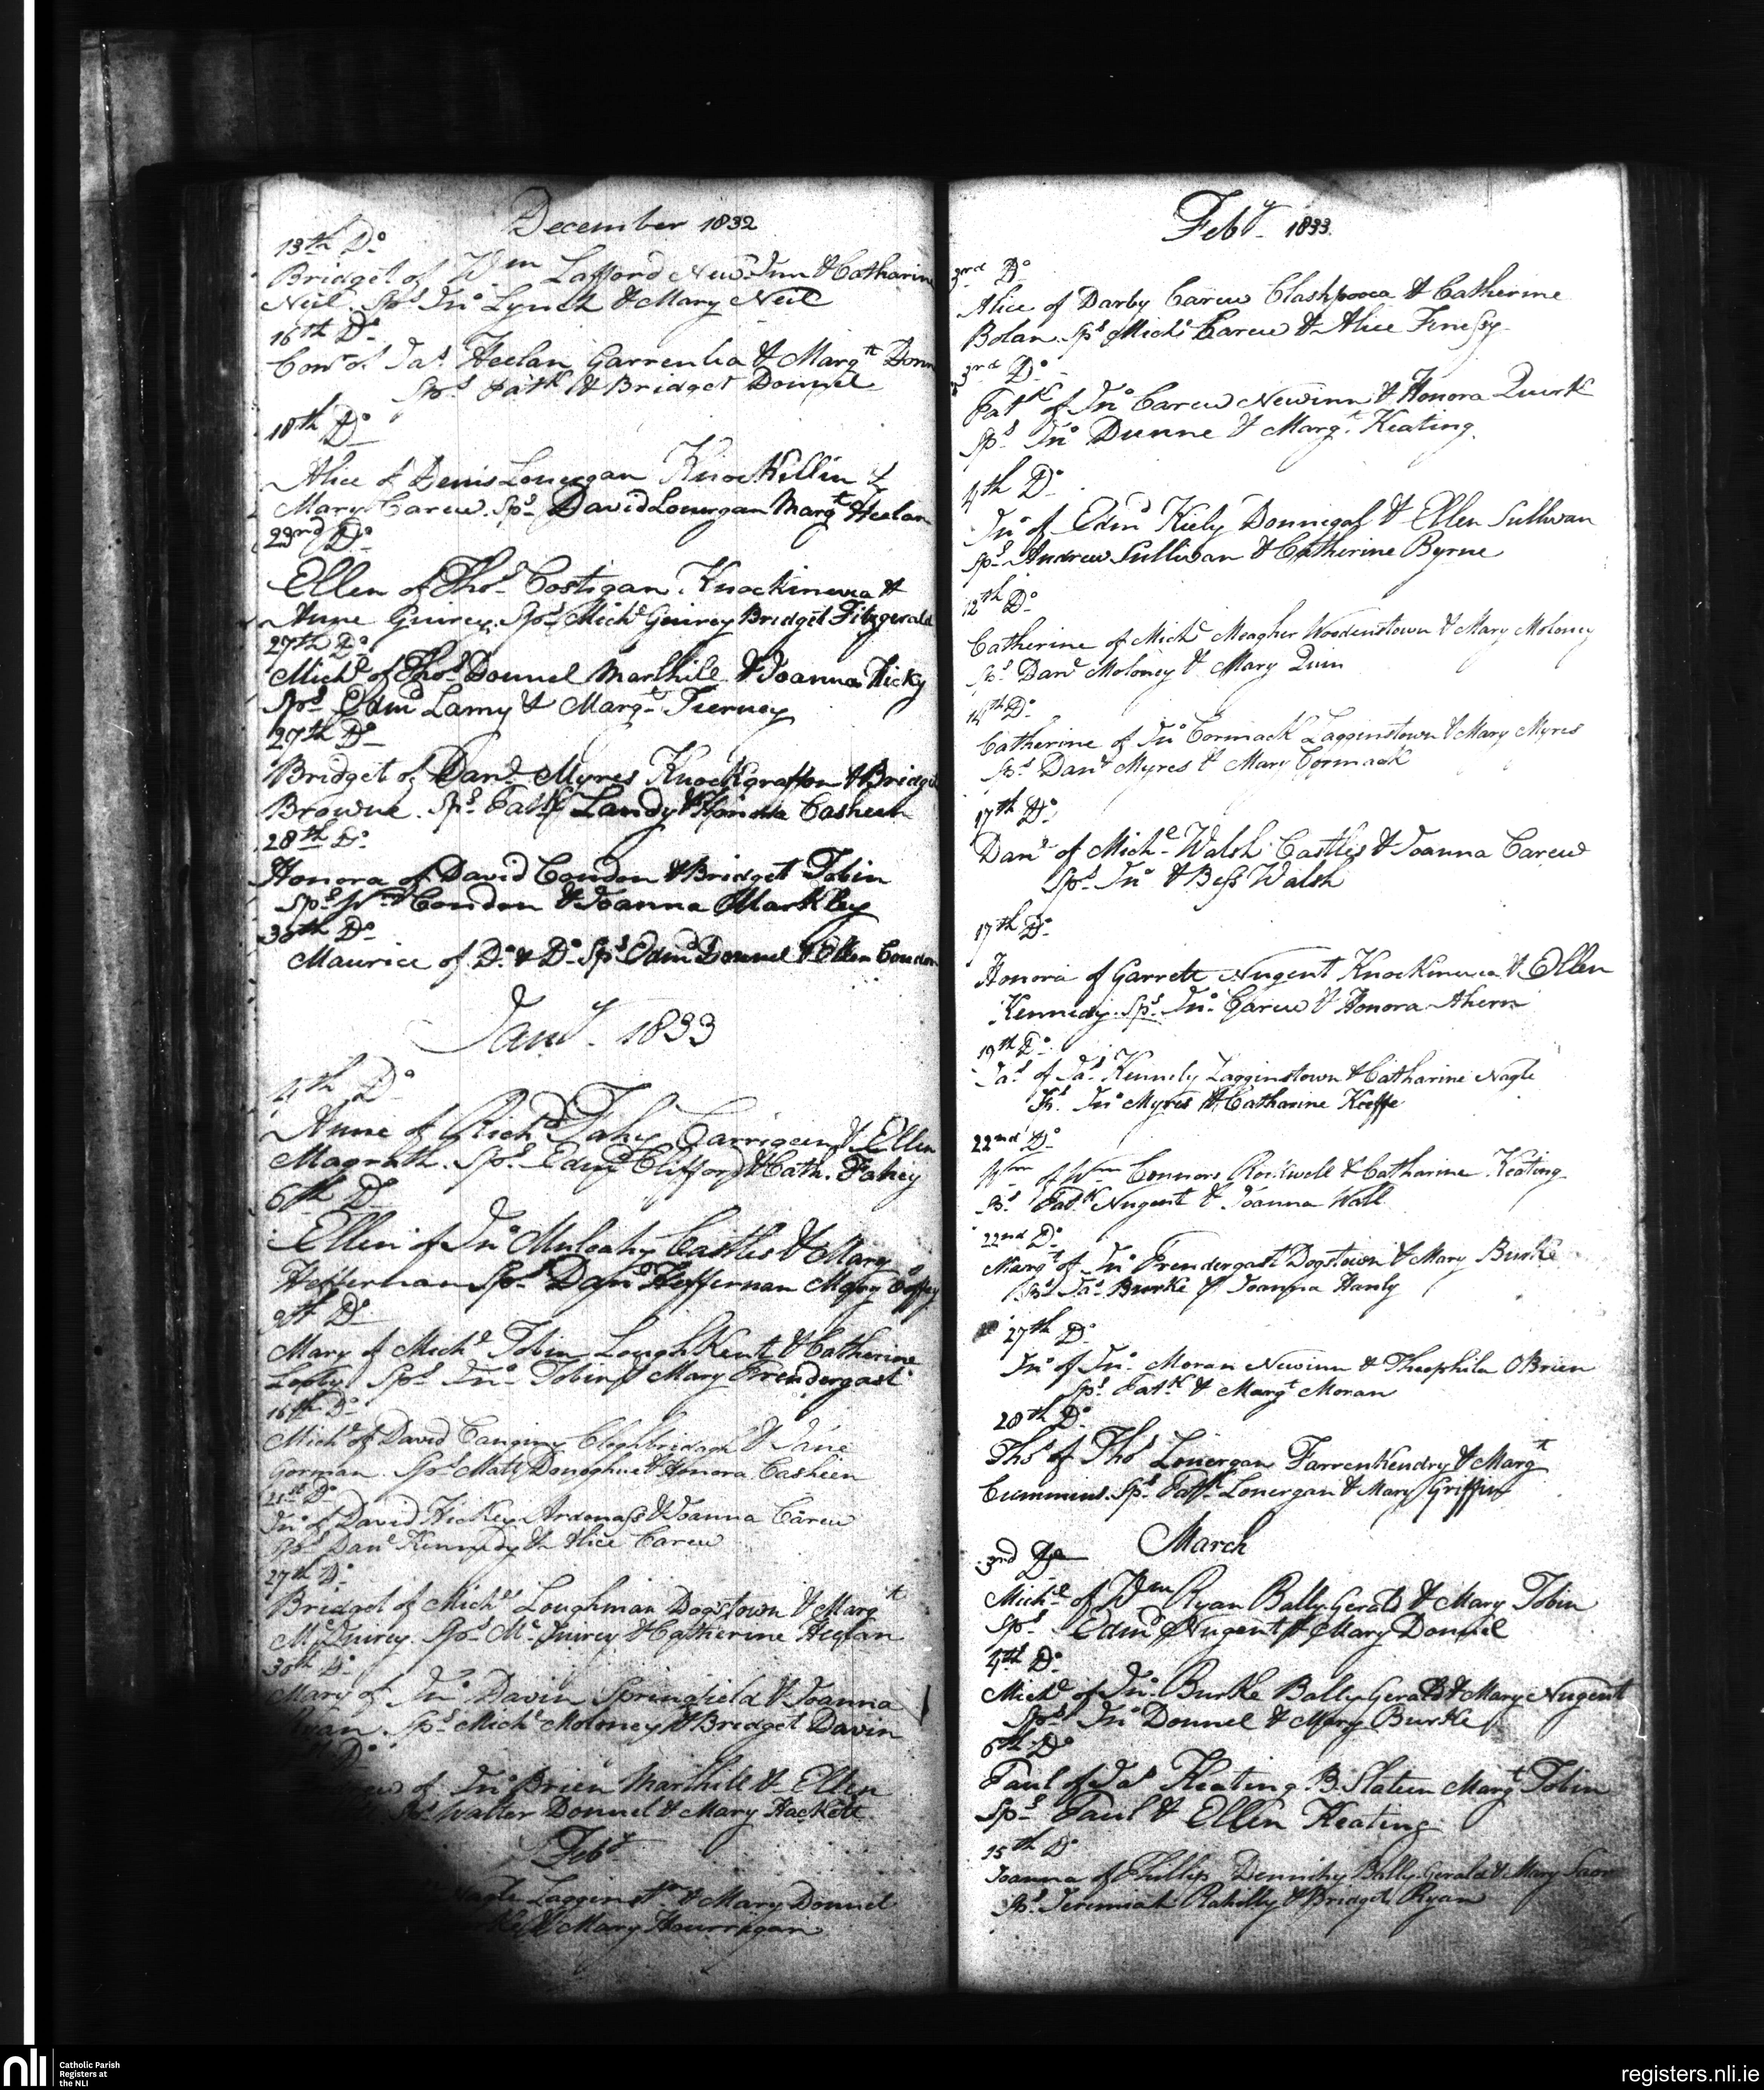 December 1832
13th Do
Bridget of Wm Lafford New Inn & Catharine
Neil. Sps Jno Lynch & Mary Neil
16th Do
Con of Jas Heelan Garrenlea & Margt Donn
Sps Patk & Bridget Donnel
18th Do
Alice of Denis Lonergan Knockillin &
Mary Carew. Sps David Lonergan Margt Heelan
23rd Do
Ellen of Thos Costigan. Knockinura &
Anne Guirey. Sps Michl Guirey Bridget Fitzgerald
27th Do
Michl of Thos Donnel Marlhill & Joanna Hicky
Sps Edmd Lamy & Margt Tierney
27th Do
Bridget of Danl Myres Knockgraffon & Bridget
Browne. Sps Patk Landy & Honora Casheen
28th Do
Honora of David Condon & Bridget Tobin
Sps Condon & Joanna Markley
30th Do
Maurice of Do & Do Sps Edmd Donnel & Ellen Condon
Jany 1833
4th Do
Anne of Richd Fahy Carrigeen & Ellen
Magrath. Sps Edmd Clifford & Cath. Fahey
6th Do
Ellen of Jno Mulcahy Castles & Mary
Heffernan Sps Danl Heffernan Mary Coffey
9th Do
Mary of Michl Tobin LoughKent & Catherine
Sps Jno Tobin & Mary Prendergast
16th Do
Michl of David Cloghbridagh & Jane
Gorman. Sps Matt Donoghue & Honora Casheen
21st Do
Jno of David Hickey Ardonass & Joanna Carew
Sps Danl Kennedy & Alice Carew
27th Do
Bridget of Michl Loughman Dogstown & Margt
McQuirey. Sps Mc Quirey & Catherine Heelan
30th Do
Mary of Jno Davin Springfield & Joanna
Ryan. Sps Michl Moloney & Bridget Davin
Do
of Jno Brien Marlhill & Ellen
Sps Walter Donnel & Mary Hackett
Feby
Nagle Lagginstn & Mary Donnel
& Mary Hourrigan
Feby 1833.
3rd Do
Alice of Darby Carew Clashpooca & Catherine
Bolan. Sps Michl Carew & Alice Finessy
3rd Do
Patk of Jno Carew Newinn & Honora Quirk
Sps Jno Dunne & Margt Keating.
4th Do
Jno of Edmd Kiely Donnegal & Ellen Sullivan
Sps Andrew Sullivan & Catherine Byrne
12th Do
Catherine of Michl Meagher Woodenstown & Mary Moloney
Sps Danl Moloney & Mary Quin
14th Do
Catherine of Jno Cormack Lagginstown & Mary Myres
Sps Danl Myres & Mary Cormack
17th Do
Danl of Michl Walsh Castles & Joanna Carew
Sps Jno & Bess Walsh
17th Do
Honora of Garrett Nugent Knockinura & Ellen
Kennedy. Sps Jno Carew & Honora Ahern
19th Do
Jas of Jas Kennely Lagginstown & Catharine Nagle
Sps Jno Myres & Catharine Keeffe
22nd Do
Wm of Wm Connors Rockwell & Catharine Keating
Ss Patk Nugent & Joanna Wall
22nd Do
Margt of Jno Prendergast Dogstown & Mary Burke
Sps Jas Burke & Joanna Hanly
27th Do
Jno of Jno Moran Newinn & Theophila OBrien
Sps Patk & Margt Moran
28th Do
Thos of Thos Lonergan Farrenkendry & Margt
Cummins. Sps Patk Lonergan & Mary Griffin
March
3rd Do
Michl of Wm Ryan Bally Gerald & Mary Tobin
Sps Edmd Nugent & Mary Donnel
4th Do
Michl of Jno Burke Bally Gerald & Mary Nugent
Sps Jno Donnel & Mary Burke
6th Do
Paul of Jas Keating. B. Slateen Margt Tobin
Sps Paul & Ellen Keating
15th Do
Joanna of Phillip Dennehy Bally Gerald & Mary
Sps Jeremiah Rahelly & Bridget Ryan
nli
Catholic Parish
Registers at
the NLI
registers.nli.ie